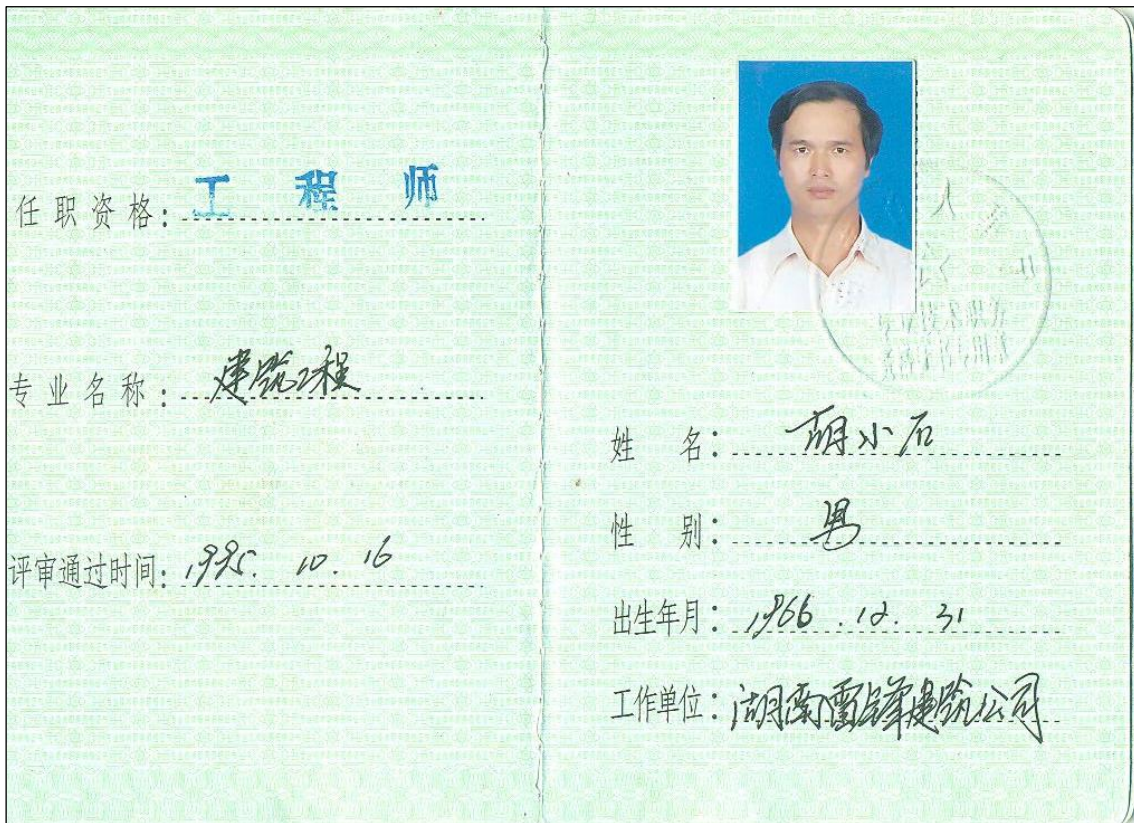 任职资格：工程师
专业名称：建筑工程
评审通过时间：1995. 10. 16
姓 名：胡小石
性 别：男
出生年月：1966. 12. 31
工作单位：湖南雷锋建筑公司